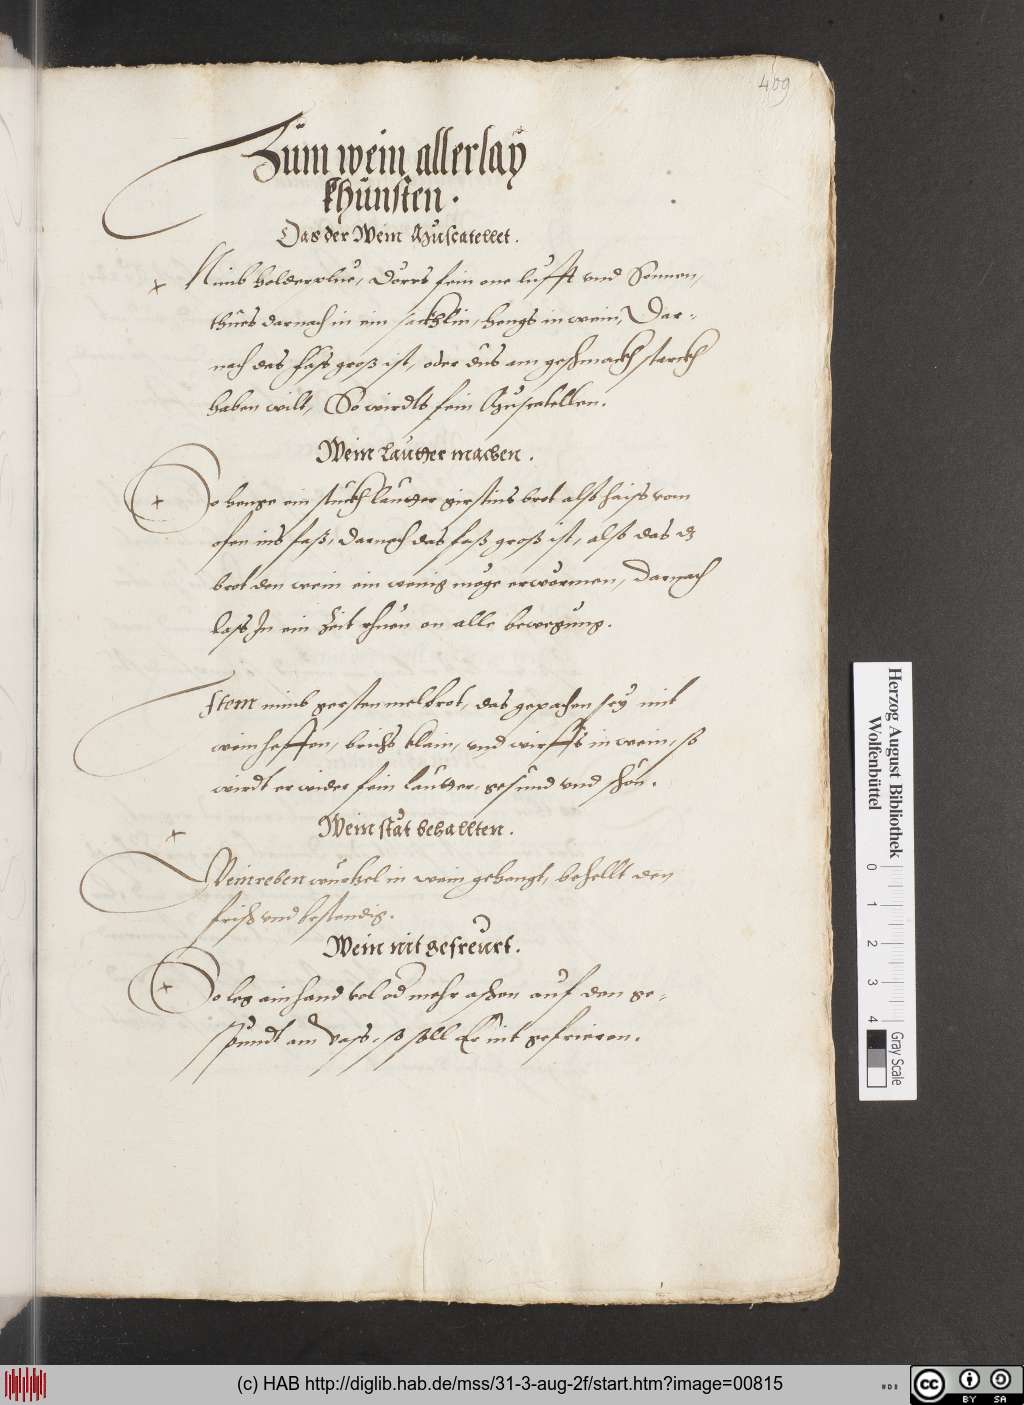 409
Zum wein allerlay
khünsten.
Das der Wein Muscatellet.
Nimb holderplüe, dörrs fein one lufft und Sonnen,
thües darnach in ein säckhlin, hengs in wein, Dar-
nach das fass groß ist, oder dus am geschmackh starckh
haben wilt, So wirdts fein Muscatellen.
Wein lautter machen.
So henge ein stuckh lautter girstins brot also haiss vom
ofen ins faß, darnach das faß groß ist, also das dz
brot den wein ein wenig möge erwörmen, darnach
lass In ein Zeit rhuen on alle bewegung.
Item nimb gersten melbrot, das gepachen sey mit
weinheffen, brichs klain, und wirffs in wein, so
wirdt er wider fein lautter, gesund und schön.
Wein stät behallten.
Weinreben wurtzel in wein gehengt, behellt den
frisch und bestendig.
Wein nit gefreurt.
So leg ain hand vol od mehr aschen auf den ge-
spundt am vass, so soll Er nit gefrieren.
Herzog August Bibliothek
Wolfenbüttel
0 1 2 3 4
Gray Scale
(c) HAB http://diglib.hab.de/mss/31-3-aug-2f/start.htm?image=00815
cc BY SA